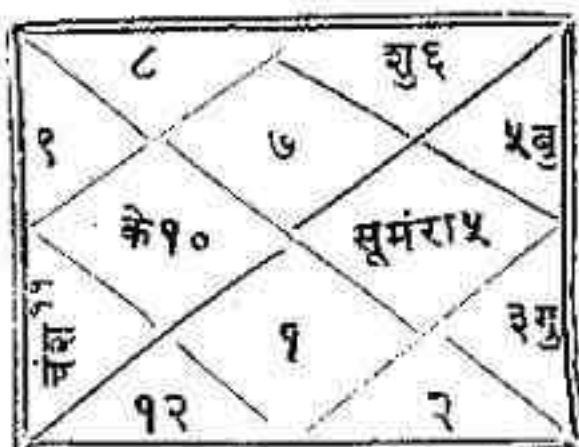 ८ शु६
९ ७ ५बु
के१० सूमंरा५
चंश ११ ३गु
१
१२ २